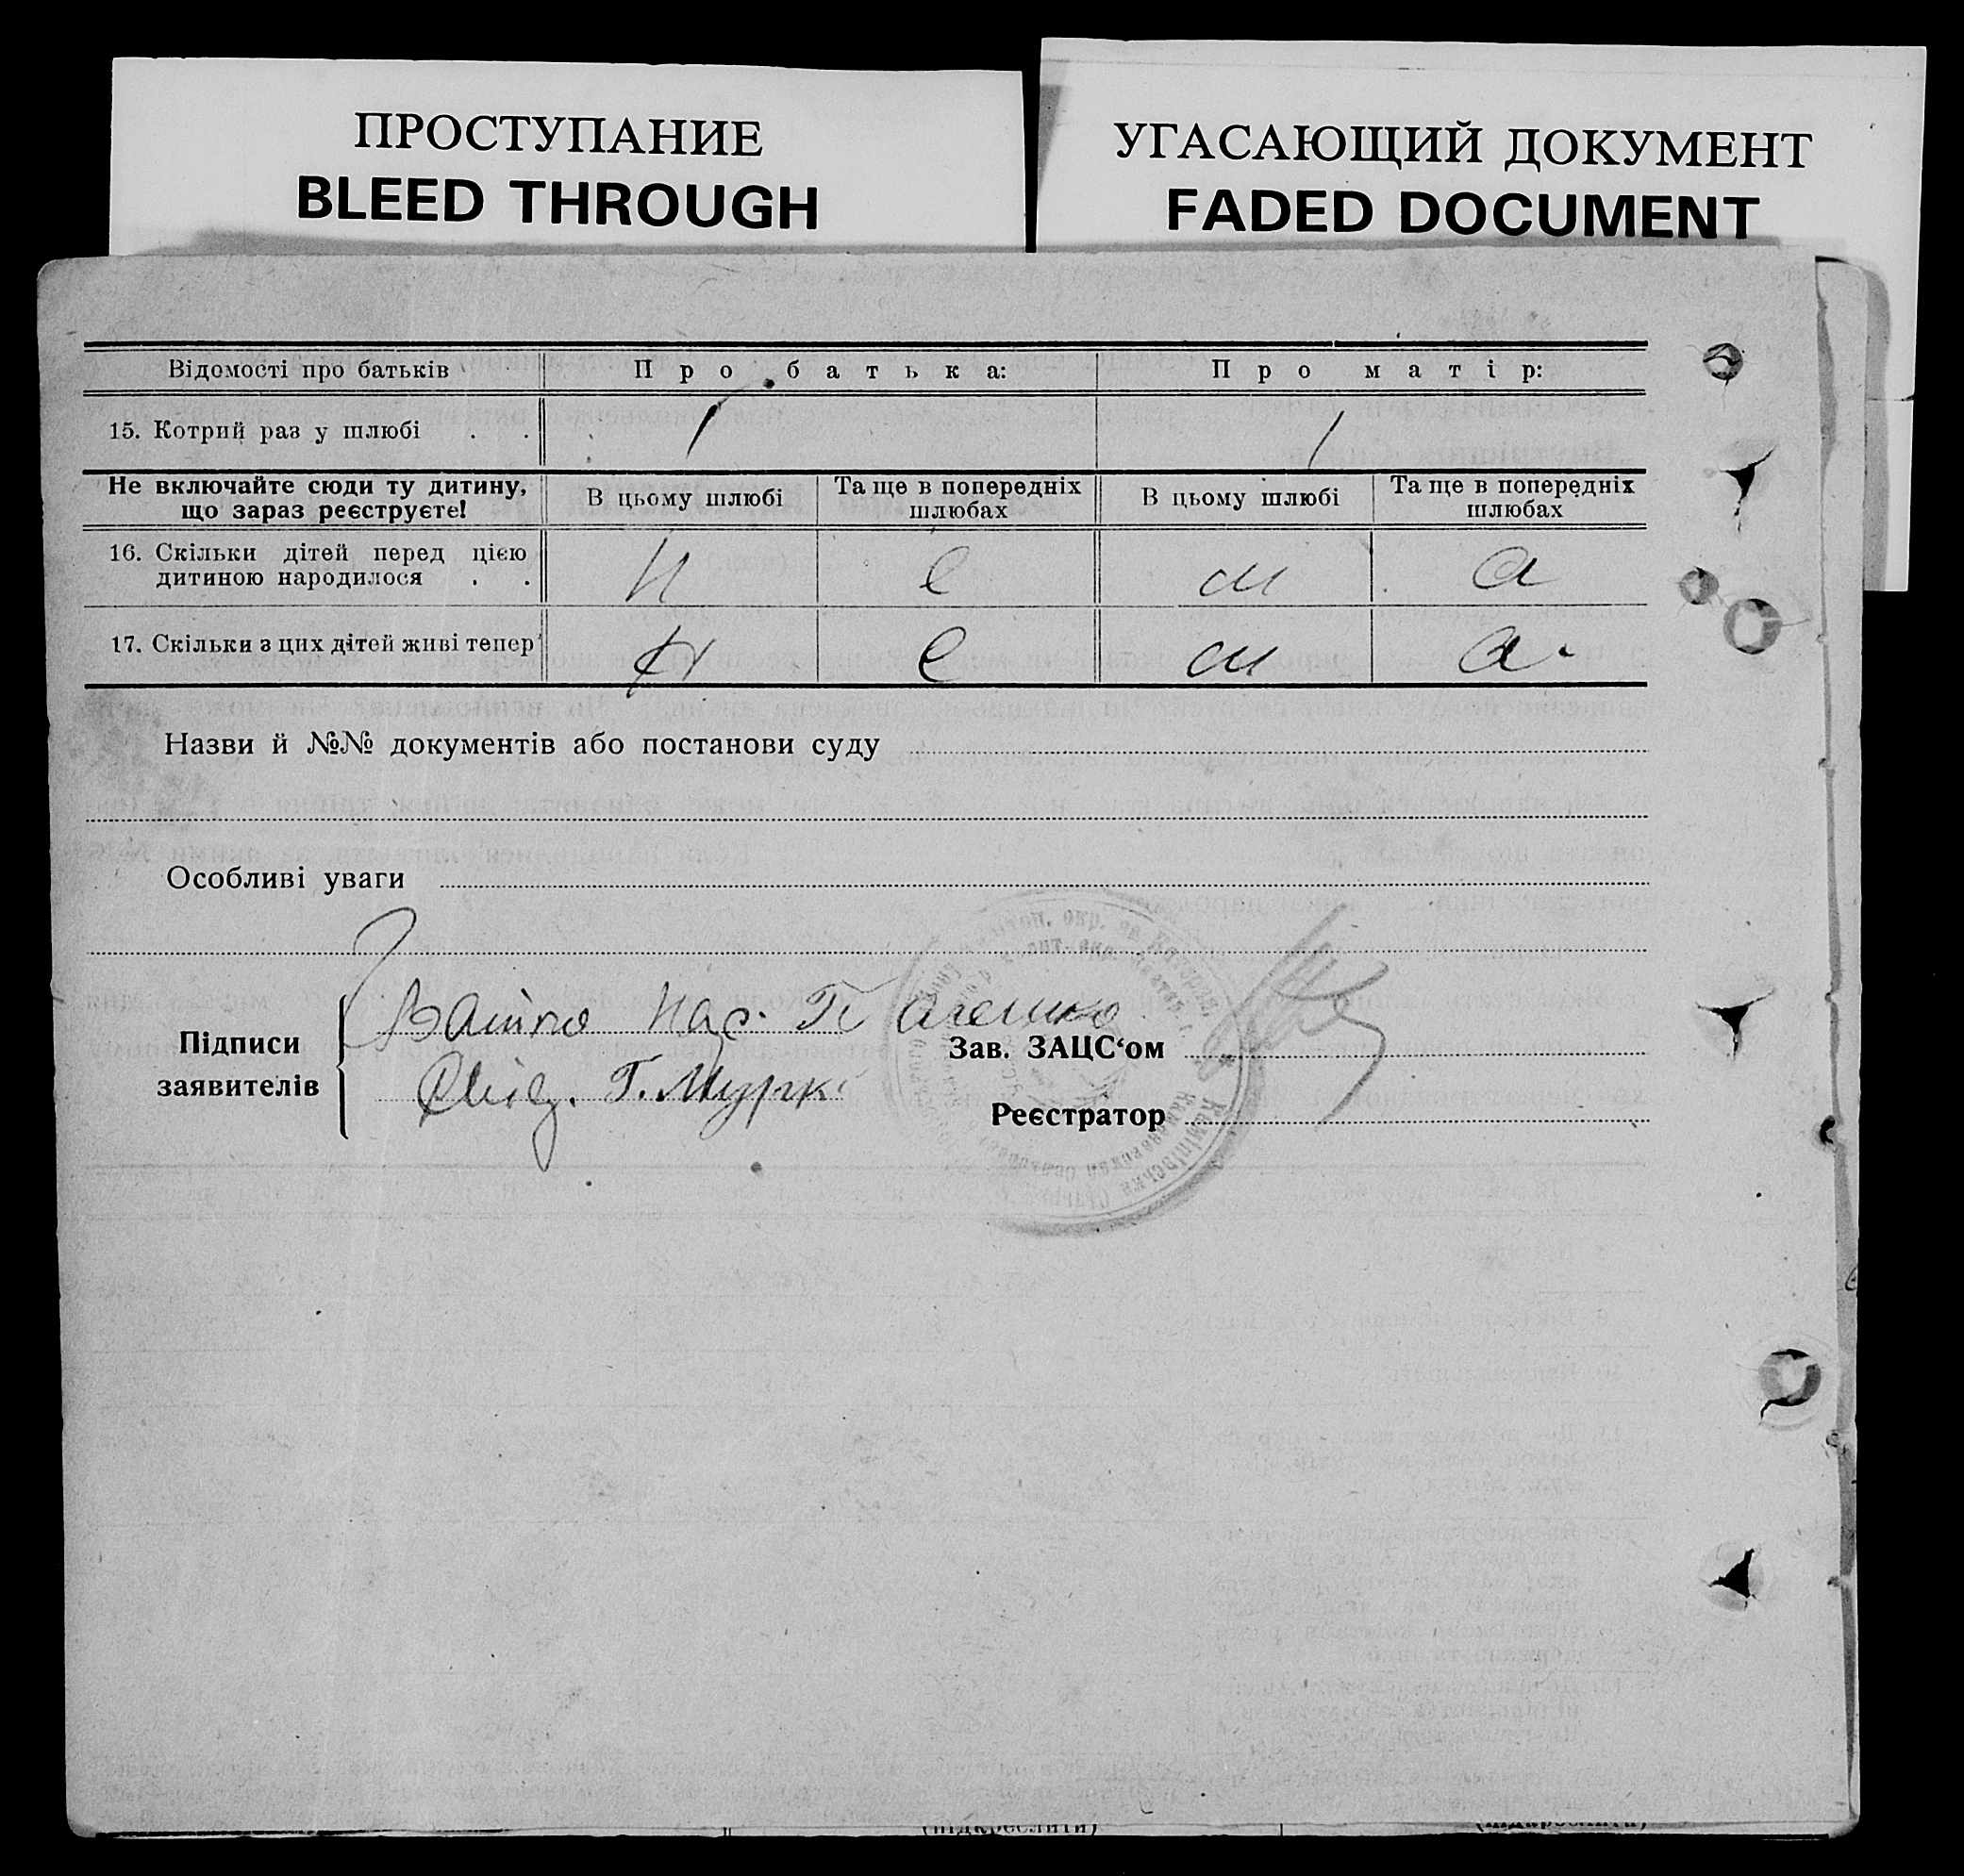 ПРОСТУПАНИЕ
BLEED THROUGH
УГАСАЮЩИЙ ДОКУМЕНТ
FADED DOCUMENT
Відомості про батьків Про батька: Про матір:
15. Котрий раз у шлюбі . . 1 1
Не включайте сюди ту дитину, що зараз реєструєте! В цьому шлюбі Та ще в попередніх шлюбах В цьому шлюбі Та ще в попередніх шлюбах
16. Скільки дітей перед цією
дитиною народилося . . н е м а
17. Скільки з цих дітей живі тепер н е м а.
Назви й №№ документів або постанови суду
Особливі уваги
Підписи
заявителів
Батько
Г. Мурк
Зав. ЗАЦС‘ом
Реєстратор
(підкреслити) (підкреслити)